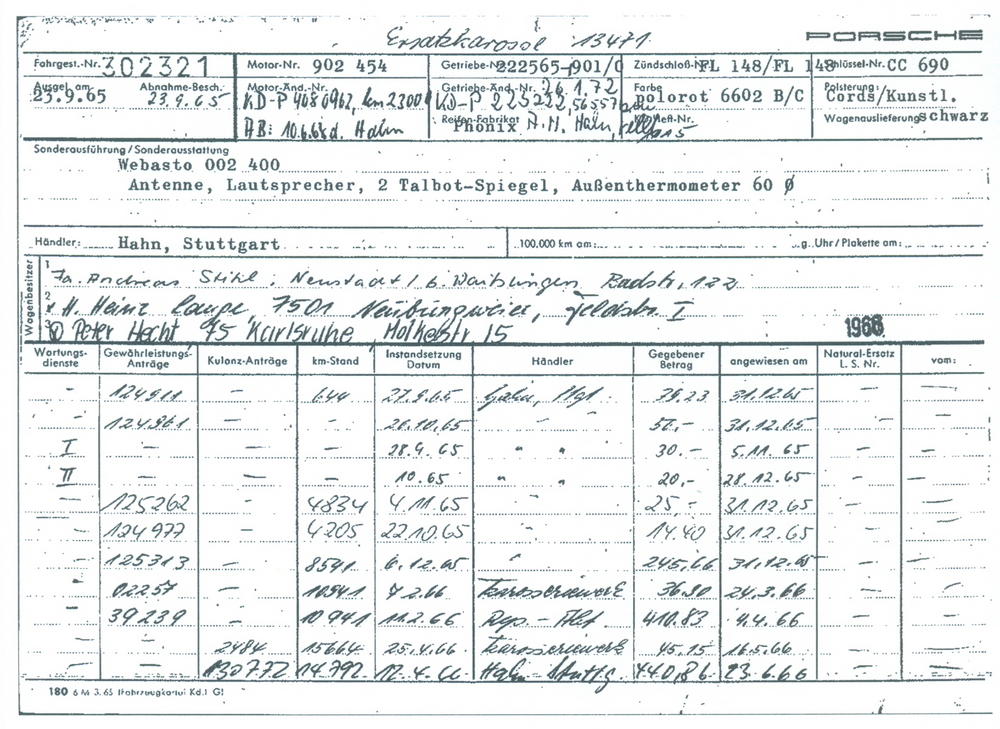 Ersatzkarosse 13471
PORSCHE
Fahrgest.-Nr. 302321 Motor-Nr. 902 454 Getriebe-Nr. 222565-901/0 Zündschloß-Nr. FL 148/FL 148 Schlüssel-Nr. CC 690
Ausgel. am: 23.9.65 Abnahme-Besch. 23.9.65 Motor-Änd.-Nr. KD-P Getriebe-Änd.-Nr. 26.1.72 KD-P 225232, 56557 Farbe Polorot 6602 B/C Polsterung: Cords/Kunstl.
AB: 10.6.68 d. Hahn Reifen-Fabrikat Phönix A.H. Hahn, Heft-Nr. Wagenauslieferung schwarz
Sonderausführung/Sonderausstattung
Webasto 002 400
Antenne, Lautsprecher, 2 Talbot-Spiegel, Außenthermometer 60 Ø
Händler: Hahn, Stuttgart 100.000 km am: g. Uhr/Plakette am:
Wagenbesitzer
1 Fa. Andreas Stihl, Neustadt / b. Waiblingen Badstr. 122
2 H. Heinz Lange, 7501 Neuburgweier, Feldstr. I
3 Peter Hecht, 75 Karlsruhe, Moltkestr. 15 1966
Wartungsdienste Gewährleistungs-Anträge Kulanz-Anträge km-Stand Instandsetzung Datum Händler Gegebener Betrag angewiesen am Natural-Ersatz L. S. Nr. vom:
- 124911 - 644 27.9.65 Hahn, Stgt. 39.23 31.12.65 - -
- 124961 - - 20.10.65 " 50,- 31.12.65 - -
I - - - 28.9.65 " " 30.- 5.11.65 - -
II - - - 10.65 " " 20,- 28.12.65 - -
- 125262 - 4834 4.11.65 " 25,- 31.12.65 - -
- 124977 - 4205 22.10.65 " 14.40 31.12.65 - -
- 125313 - 8591 6.12.65 " 245,66 31.12.65 - -
- 02257 - 10941 7.2.66 Karosseriewerk 36.90 24.3.66 - -
- 39239 - 10941 11.2.66 Rep.-Abt. 410.83 4.4.66 - -
- - 2484 15664 25.4.66 Karosseriewerk 45.15 16.5.66 - -
- - 130772 14792 12.4.66 Hahn Stuttg. 440,86 23.6.66 - -
180 6 M 3.65 (Fahrzeugkartei Kd.I G)